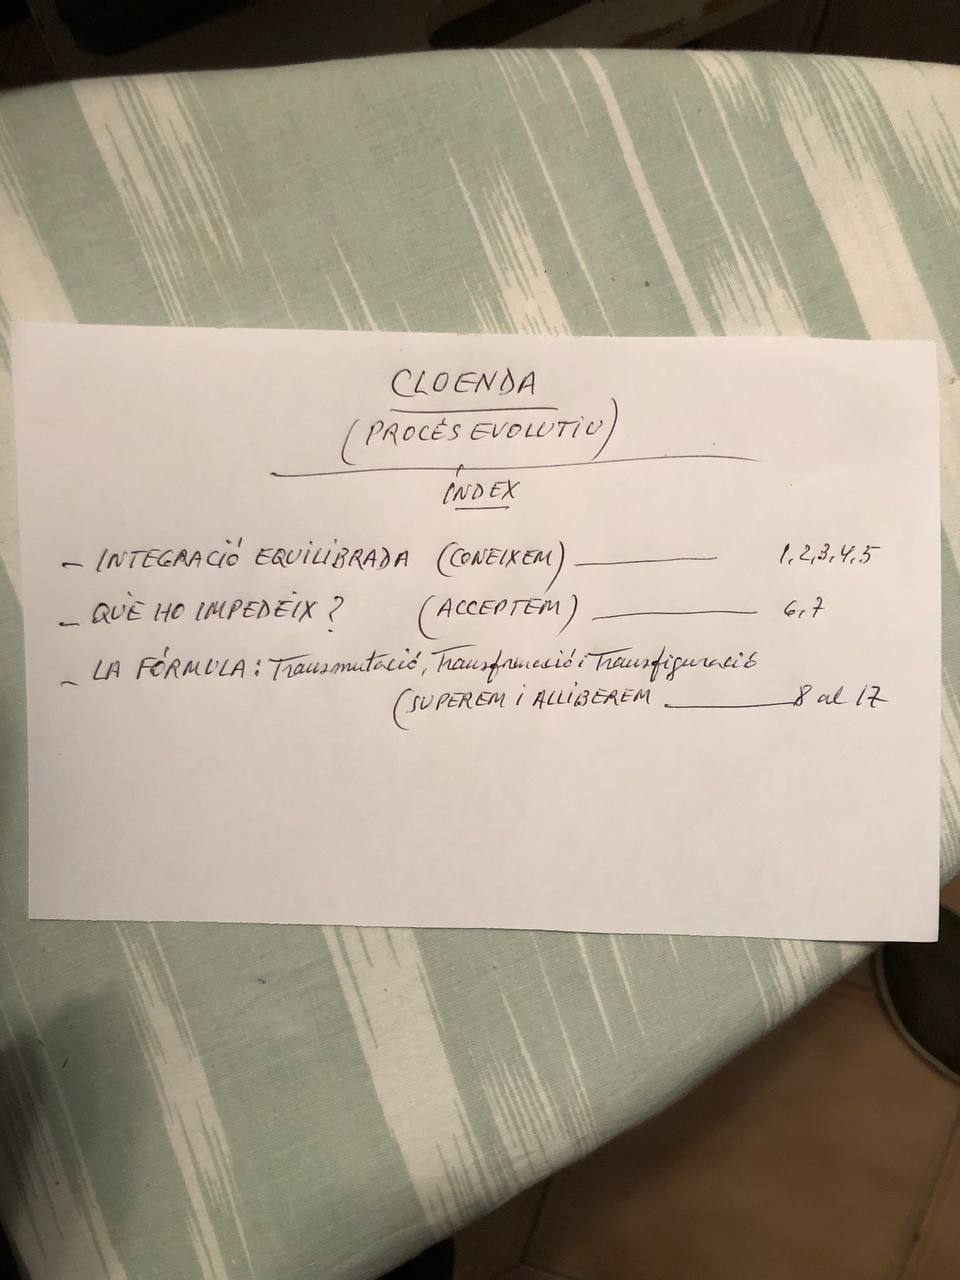 CLOENDA
(PROCÉS EVOLUTIU)
ÍNDEX
- INTEGRACIÓ EQUILIBRADA (CONEIXEM) ——— 1,2,3,4,5
- QUÈ HO IMPEDEIX? (ACCEPTEM) ——— 6,7
- LA FÓRMULA: Transmutació, Transformació i Transfiguració
(SUPEREM i ALLIBEREM ——— 8 al 17